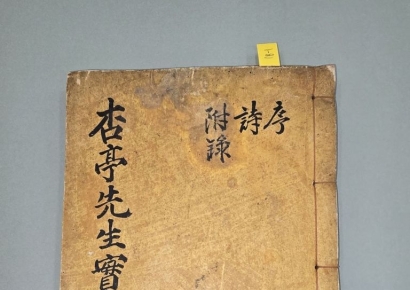 杏亭先生實
序
詩
附錄